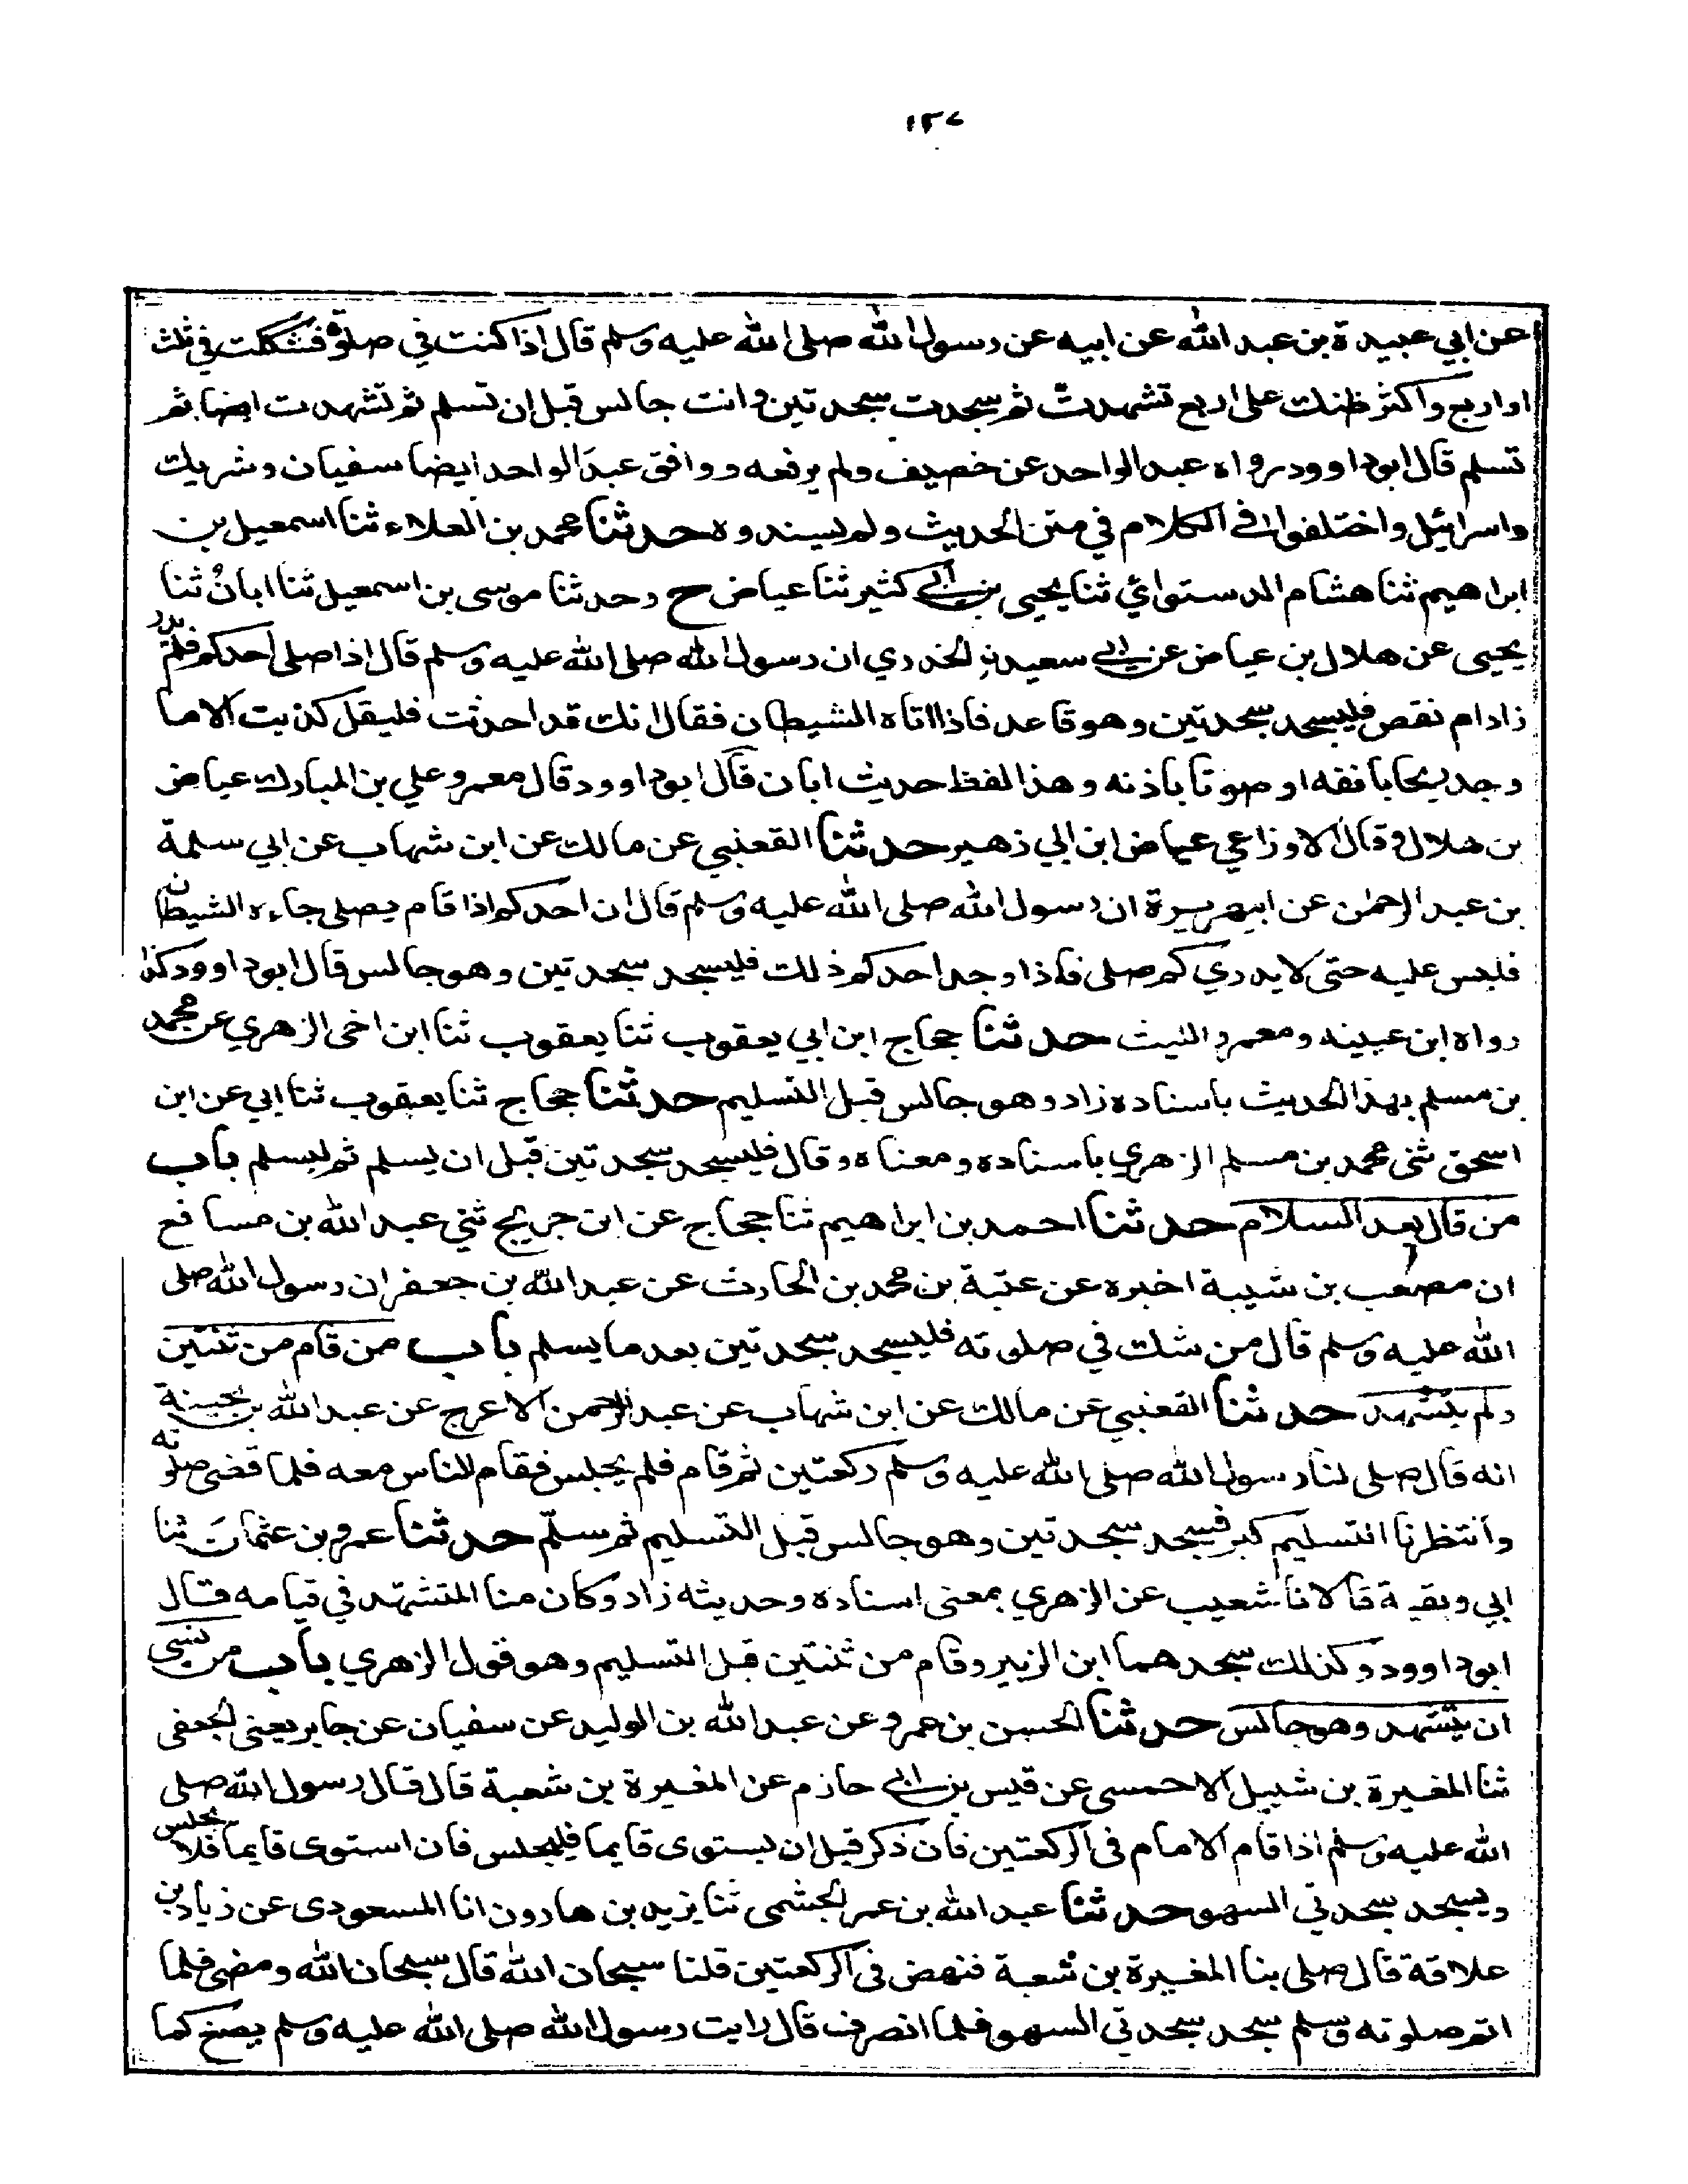 ١٢٧
عن ابي عبيدة بن عبد الله عن ابيه عن رسول الله صلى الله عليه وسلم قال اذا كنت في صلوة فشككت في ثلث
او اربع واكثر ظنك على اربع تشهدت ثم سجدت سجدتين وانت جالس قبل ان تسلم ثم تشهدت ايضا ثم
تسلم قال ابو داوود رواه عبد الواحد عن خصيف ولم يرفعه ووافق عبد الواحد ايضا سفيان وشريك
واسرائيل واختلفوا في الكلام في متن الحديث ولم يسندوه حدثنا محمد بن العلاء ثنا اسمعيل بن
ابراهيم ثنا هشام الدستوائي ثنا يحيى بن ابي كثير ثنا عياض ح وحدثنا موسى بن اسمعيل ثنا ابان ثنا
يحيى عن هلال بن عياض عن ابي سعيد الخدري ان رسول الله صلى الله عليه وسلم قال اذا صلى احدكم فلم يدر
زاد ام نقص فليسجد سجدتين وهو قاعد فاذا اتاه الشيطان فقال انك قد احدثت فليقل كذبت الا ما
وجد ريحا بانفه او صوتا باذنه وهذا لفظ حديث ابان قال ابو داوود قال معمر وعلي بن المبارك عياض
بن هلال وقال الاوزاعي عياض ابن ابي زهير حدثنا القعنبي عن مالك عن ابن شهاب عن ابي سلمة
بن عبد الرحمن عن ابي هريرة ان رسول الله صلى الله عليه وسلم قال ان احدكم اذا قام يصلي جاءه الشيطان
فلبس عليه حتى لا يدري كم صلى فاذا وجد احدكم ذلك فليسجد سجدتين وهو جالس قال ابو داوود كذا
رواه ابن عيينه ومعمر والليث حدثنا حجاج ابن ابي يعقوب ثنا يعقوب ثنا ابن اخى الزهري عن محمد
بن مسلم بهذا الحديث باسناده زاد وهو جالس قبل التسليم حدثنا حجاج ثنا يعقوب ثنا ابي عن ابن
اسحق ثنى محمد بن مسلم الزهري باسناده ومعناه وقال فليسجد سجدتين قبل ان يسلم ثم ليسلم باب
من قال بعد السلام حدثنا احمد بن ابراهيم ثنا حجاج عن ابن جريج ثني عبد الله بن مسافع
ان مصعب بن شيبة اخبره عن عتبة بن محمد بن الحارث عن عبد الله بن جعفر ان رسول الله صلى
الله عليه وسلم قال من شك في صلوته فليسجد سجدتين بعد ما يسلم باب من قام من ثنتين
ولم يتشهد حدثنا القعنبي عن مالك عن ابن شهاب عن عبد الرحمن الاعرج عن عبد الله بن بحينة
انه قال صلى لنا رسول الله صلى الله عليه وسلم ركعتين ثم قام فلم يجلس فقام الناس معه فلما قضى صلوته
وانتظرنا التسليم كبر فسجد سجدتين وهو جالس قبل التسليم ثم سلم حدثنا عمرو بن عثمان ثنا
ابي وبقية قالا نا شعيب عن الزهري بمعنى اسناده وحديثه زاد وكان منا المتشهد في قيامه قال
ابو داوود وكذلك سجدهما ابن الزبير وقام من ثنتين قبل التسليم وهو قول الزهري باب من نسى
ان يتشهد وهو جالس حدثنا الحسن بن عمرو عن عبد الله بن الوليد عن سفيان عن جابر يعني الجعفى
ثنا المغيرة بن شبيل الاحمسى عن قيس بن ابي حازم عن المغيرة بن شعبة قال قال رسول الله صلى
الله عليه وسلم اذا قام الامام في الركعتين فان ذكر قبل ان يستوى قايما فليجلس فان استوى قايما فلا يجلس
ويسجد سجدتي السهو حدثنا عبد الله بن عمر الجشمى ثنا يزيد بن هارون انا المسعودى عن زياد بن
علاقة قال صلى بنا المغيرة بن شعبة فنهض في الركعتين قلنا سبحان الله قال سبحان الله ومضى فلما
اتم صلوته وسلم سجد سجدتي السهو فلما انصرف قال رايت رسول الله صلى الله عليه وسلم يصنع كما